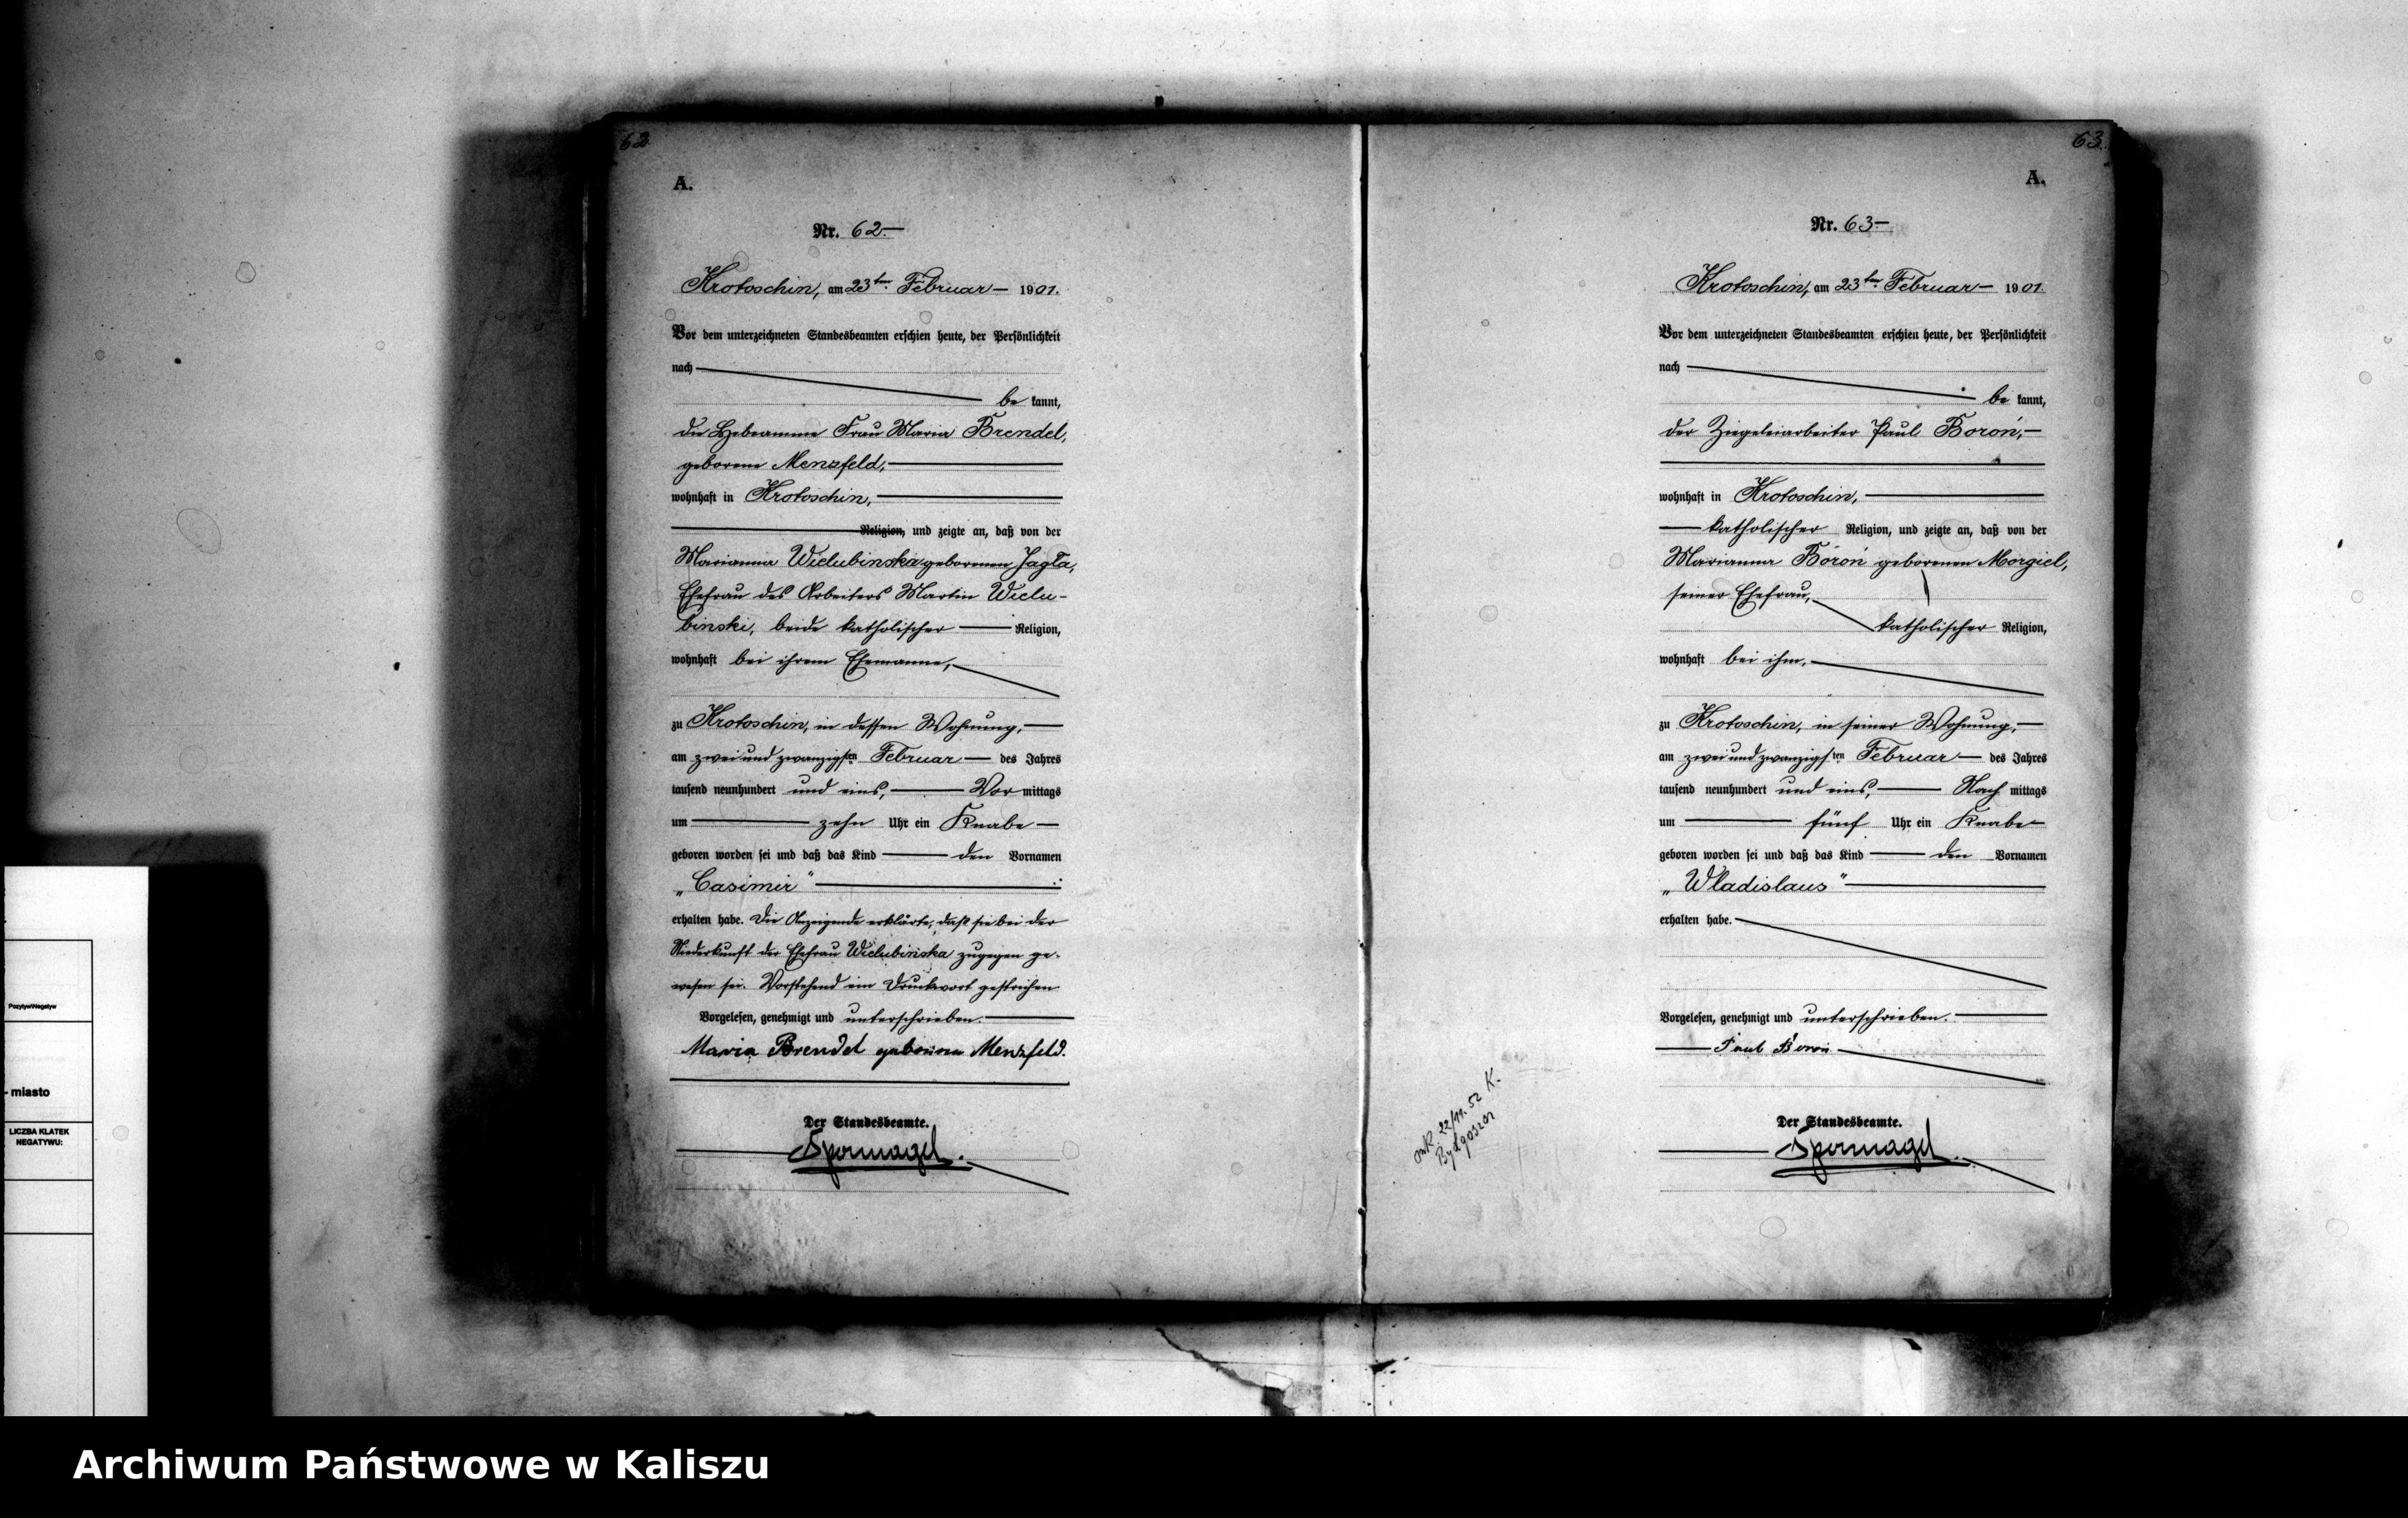 62
A.
Nr. 62.
Krotoschin, am 23ten Februar 1901.
Vor dem unterzeichneten Standesbeamten erschien heute, der Persönlichkeit
nach
be kannt,
die Hebeamme Frau Maria Brendel,
geborene Menzfeld,
wohnhaft in Krotoschin,
Religion, und zeigte an, daß von der
Marianna Wielubinska geborenen Jagla,
Ehefrau des Arbeiters Martin Wielu-
binski, beide katholischer Religion,
wohnhaft bei ihrem Ehemanne,
zu Krotoschin, in dessen Wohnung,
am zwei und zwanzigsten Februar des Jahres
tausend neunhundert und eins, Vor mittags
um zehn Uhr ein Knabe
geboren worden sei und daß das Kind den Vornamen
„Casimir"
erhalten habe. Die Anzeigende erklärte, daß sie bei der
Niederkunft der Ehefrau Wielubinska zugegen ge-
wesen sei. Vorstehend ein Druckwort gestrichen
Vorgelesen, genehmigt und unterschrieben.
Maria Brendel geborene Menzfeld.
Der Standesbeamte.
Spornagel.
63.
A.
Nr. 63
Krotoschin, am 23ten Februar 1901.
Vor dem unterzeichneten Standesbeamten erschien heute, der Persönlichkeit
nach
be kannt,
der Ziegeleiarbeiter Paul Boroń,
wohnhaft in Krotoschin,
katholischer Religion, und zeigte an, daß von der
Marianna Boroń geborenen Morgiel,
seiner Ehefrau,
katholischer Religion,
wohnhaft bei ihm,
zu Krotoschin, in seiner Wohnung,
am zwei und zwanzigsten Februar des Jahres
tausend neunhundert und eins, Nach mittags
um fünf Uhr ein Knabe
geboren worden sei und daß das Kind den Vornamen
„Wladislaus"
erhalten habe.
Vorgelesen, genehmigt und unterschrieben.
Paul Boroń
Der Standesbeamte.
Spornagel.
22/11. 52 K.
Bydgoszcz
Pozytyw/Negatyw
- miasto
LICZBA KLATEK
NEGATYWU:
Archiwum Państwowe w Kaliszu